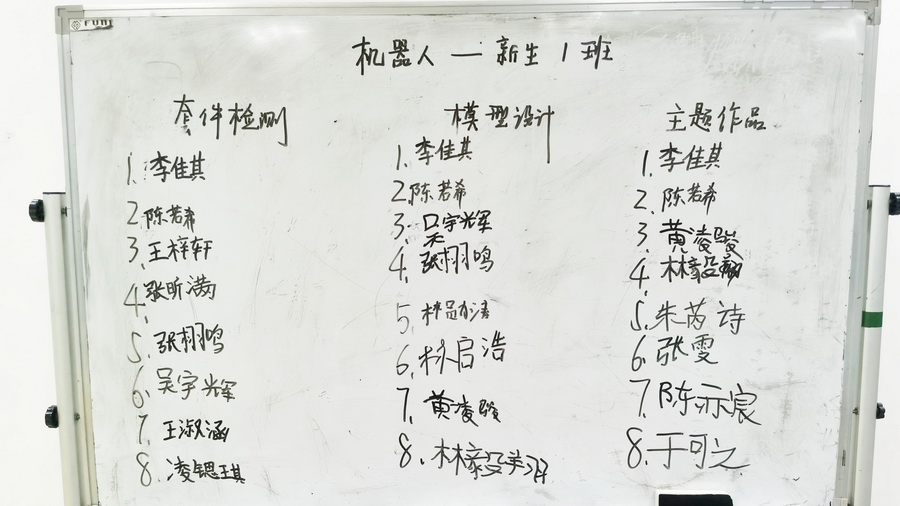 机器人 — 新生1班
套件检测
1. 李佳其
2. 陈若希
3. 王梓轩
4. 张昕满
5. 张栩鸣
6. 吴宇辉
7. 王淑涵
8. 凌锶琪
模型设计
1. 李佳其
2. 陈若希
3. 吴宇辉
4. 张栩鸣
5. 林
6. 林启浩
7. 黄凌骏
8. 林豪毅
主题作品
1. 李佳其
2. 陈若希
3. 黄凌骏
4. 林豪毅
5. 朱芮诗
6. 张雯
7. 陈亦宸
8. 于可之